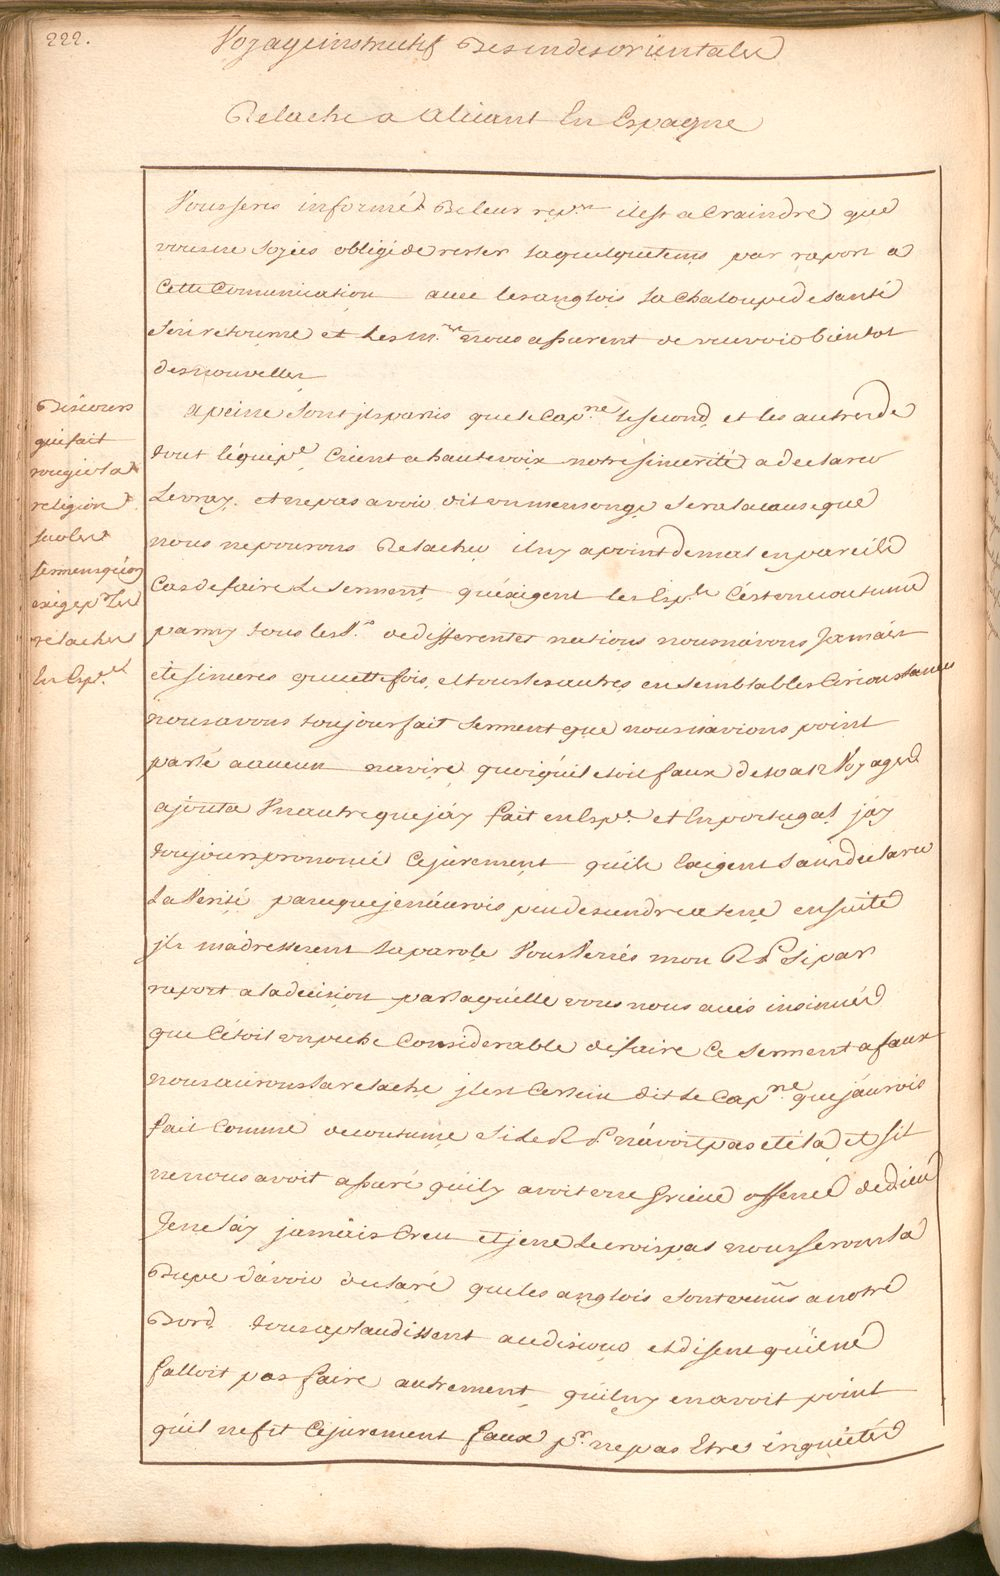 222.
Voyage instructif Des indes orientales
Relache a alicant En Espagne
Vous seres informé De leur rep.on il est a Craindre que
vous ne soyies obligé de rester la quelque tems par raport a
Cette Comunication avec les anglois la Chaloupe de santé
sen retourne et Les m.rs nous assurent de recevoir bientot
des nouvelles
Discours
qui fait
rougir la
religion
sur les
sermens qu'on
exige p.r Les
relaches
En Esp.e
a peine sont jls partis que le Cap.ne le second et les autres de
tout l'équip.e Crient a haute voix notre sincerité a declarer
Le vray. et ne pas avoir dit un mensonge sera la cause que
nous ne pourons Relacher il ny a point de mal en pareils
Cas de faire Le serment qu'exigent les Esp.ls C'est une coutume
parmy tous les V.x de differentes nations nous n'avons Jamais
été sinceres que cette fois, et tous les autres en semblables Circonstances
nous avons toujour fait serment que nous n'avions point
parlé a aucun navire quoiqu'il etoit faux de tous les 12 Voyages
ajouta Un autre que j'ay fait en Esp.e et En portugal j'ay
toujours prononcé Ce jurement qu'ils Exigent sans declarer
La Verité parceque je n'aurois peu descendre a terre ensuite
jls m'adresserent la parole Vous Verrés mon R P si par
raport a la decision par laquelle vous nous avés insinué
que C'étoit un peche Considerable de faire Ce serment a faux
nous aurons la relache jl est Certein dit Le Cap.ne que j'aurois
fait Comme de coutume si le R P n'avoit pas eté la et s'il
ne nous avoit assuré qu'il y avoit une Grieve offence de dieu
Je ne l'ay jamais Creu et je ne Le crois pas nous serons la
Dupe d'avoir declaré que les anglois sont venüs a notre
Bord. tous aplaudissent au discour et disent qu'il ne
falloit pas faire autrement qu'il ny en avoit point
qu'il ne fit Ce jurement faux p.r ne pas Etre inquiétés